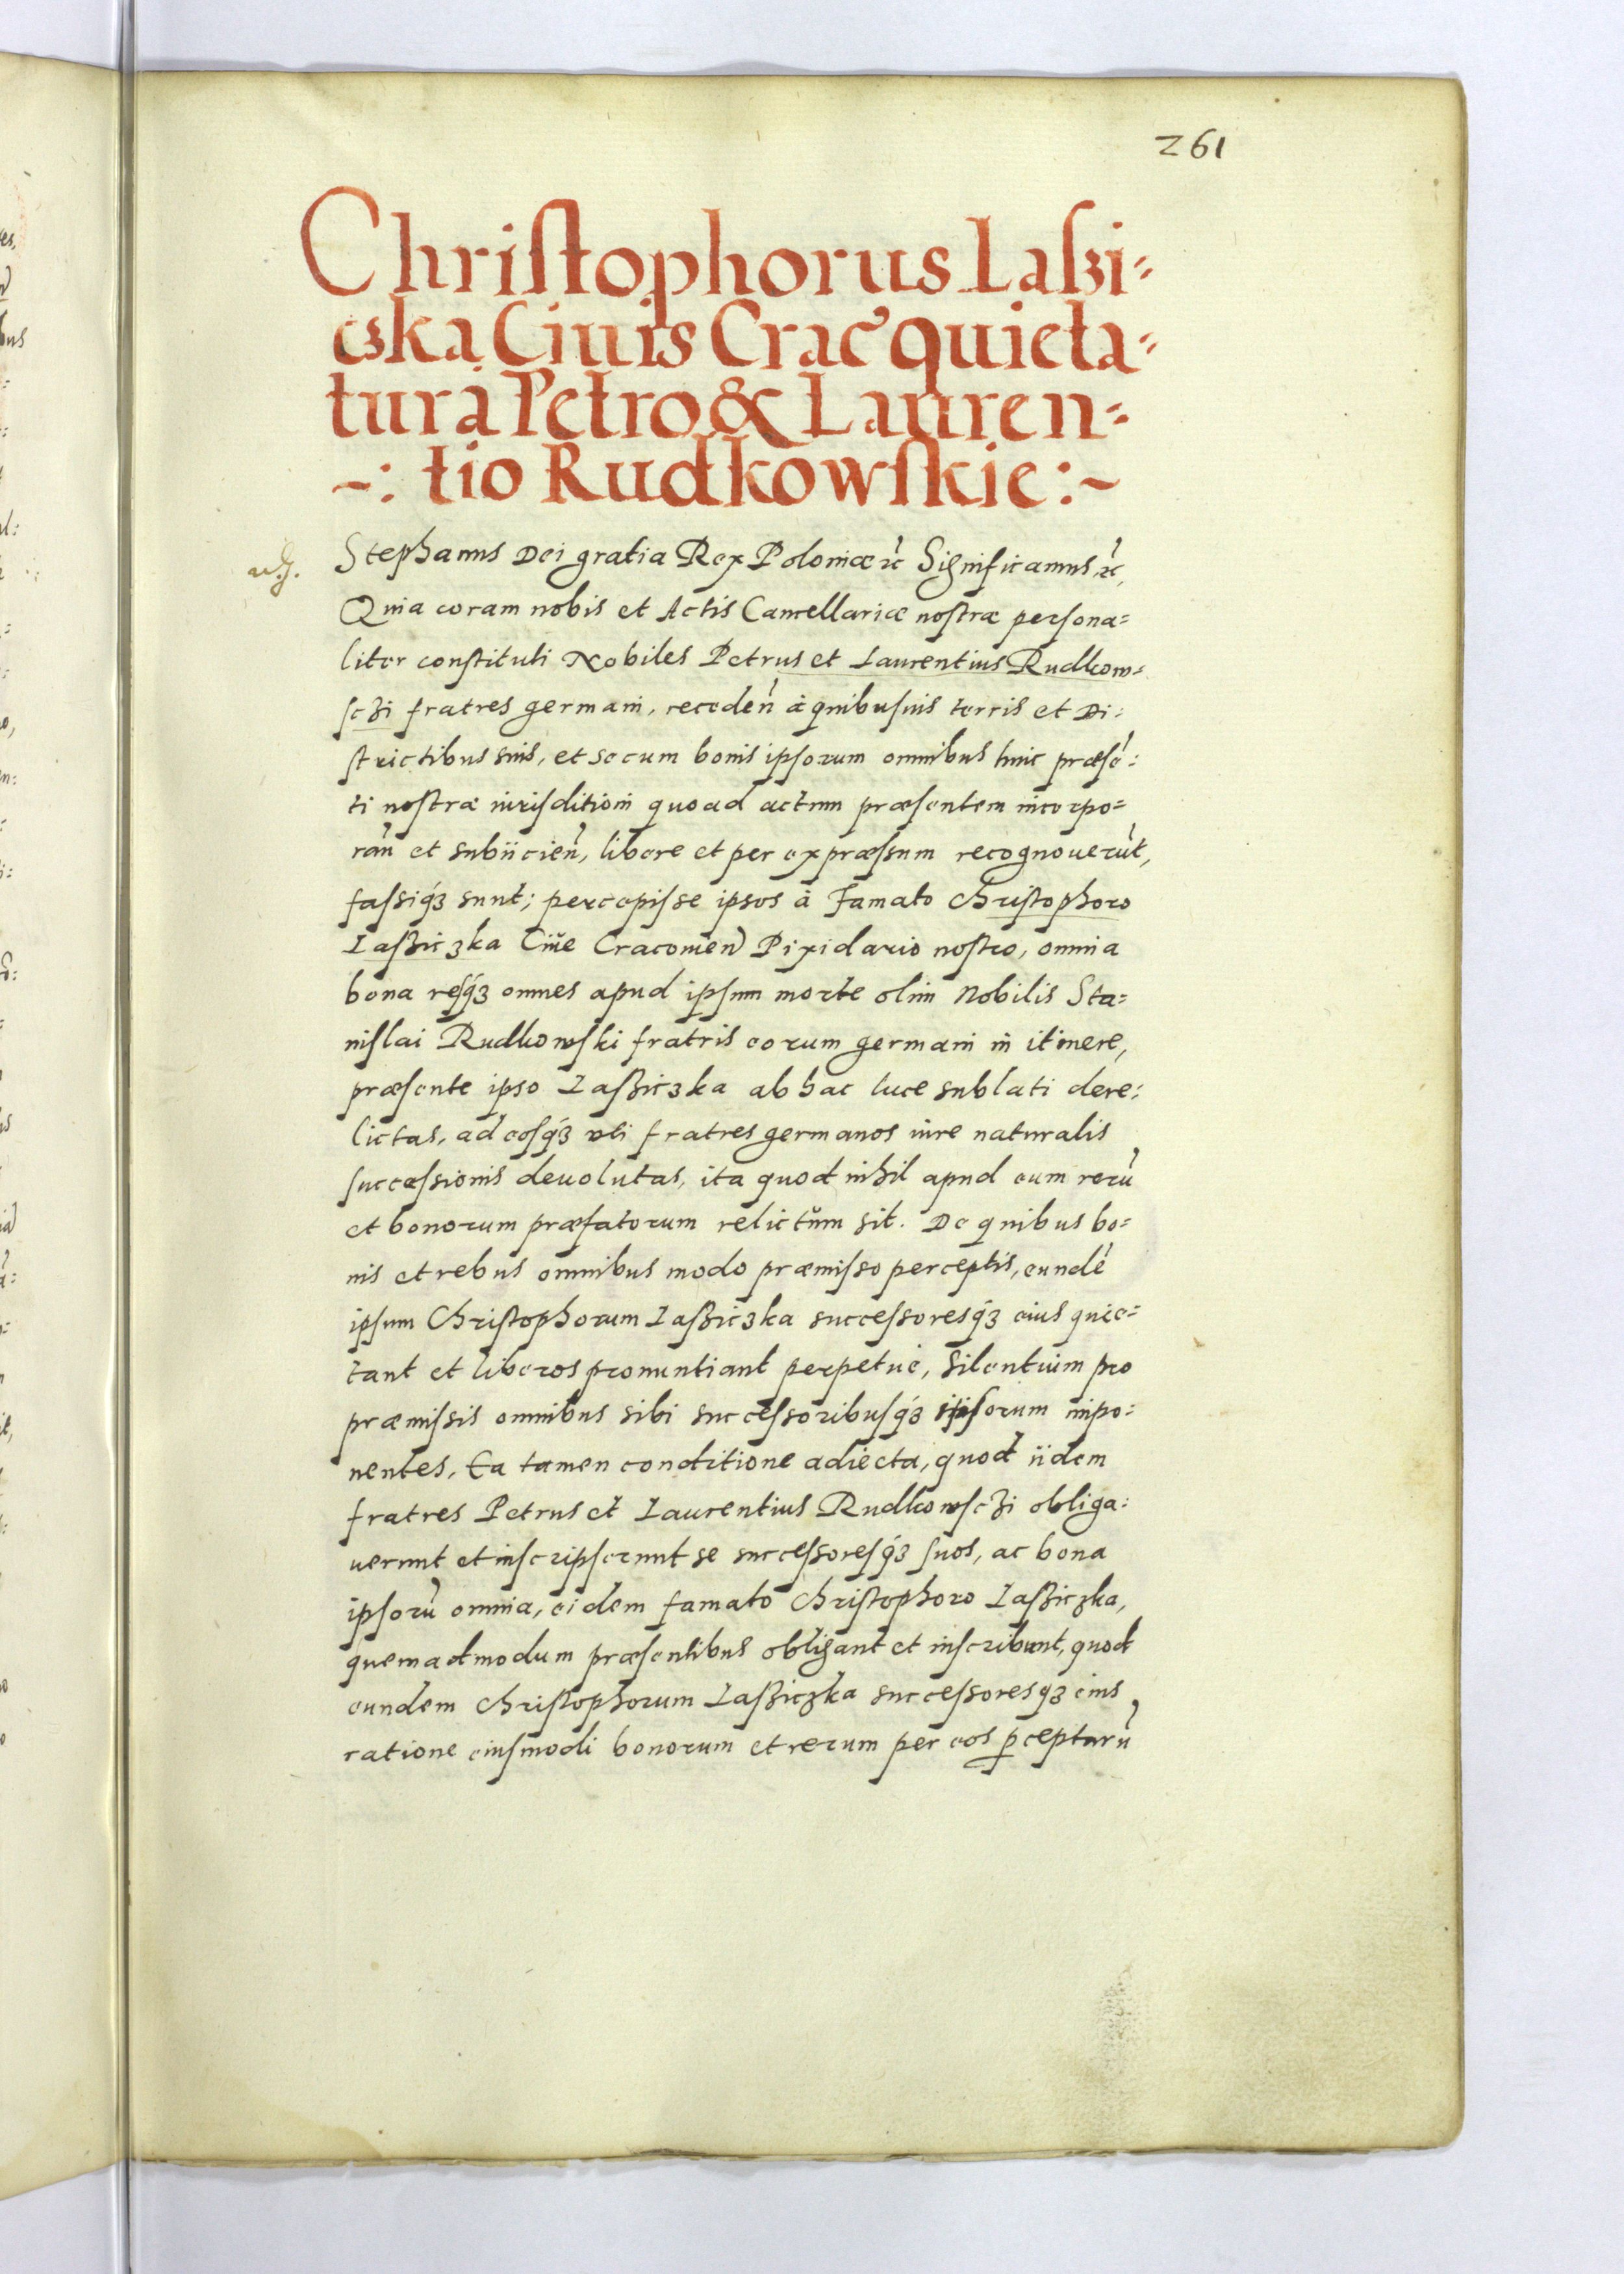 261
Christophorus Laßi-
czka Ciuis Crac̃ quieta-
tur à Petro & Lauren-
-: tio Rudkowskie :~
Stephanus Dei gratia Rex Poloniæ ꝛc̃ Significamus, ꝛc̃,
Quia coram nobis et Actis Cancellariæ nostræ persona-
liter constituti Nobiles Petrus et Laurentius Rudkow-
sczi fratres germani, receden̄ à quibusuis terris et Di:
strictibus suis, et secum bonis ipsorum omnibus huic præsē:
ti nostræ iurisditioni quoad actum præsentem incorpo-
rān et subiicien̄, libere et per expræssum recognouerūt,
fassiq́ꝫ sunt; percepisse ipsos à Famato Christophoro
Laßiczka Ciũe Cracouien̄ Pixidario nostro, omnia
bona resq́ꝫ omnes apud ipsum morte olim Nobilis Sta-
nislai Rudkowski fratris eorum germani in itinere,
præsente ipso Laßiczka ab hac luce sublati dere:
lictas, ad eosq́ꝫ uti fratres germanos iure naturalis
successionis deuolutas, ita quod nihil apud eum rerū
et bonorum præfatorum relictum sit. De quibus bo-
nis et rebus omnibus modo præmisso perceptis, eundē
ipsum Christophorum Laßiczka successoresq́ꝫ eius quie-
tant et liberos pronuntiant perpetuè, Silentium pro
præmissis omnibus sibi successoribusq́ꝫ ipsorum impo:
nentes, Ea tamen conditione adiecta, quod iidem
fratres Petrus et Laurentius Rudkowsczi obliga:
uerunt et inscripserunt se successoresq́ꝫ suos, ac bona
ipsorū omnia, eidem famato Christophoro Laßiczka,
quemadmodum præsentibus obligant et inscribunt, quod
eundem Christophorum Laßiczka successoresqꝫ eius
ratione eiusmodi bonorum et rerum per eos ꝑceptarū